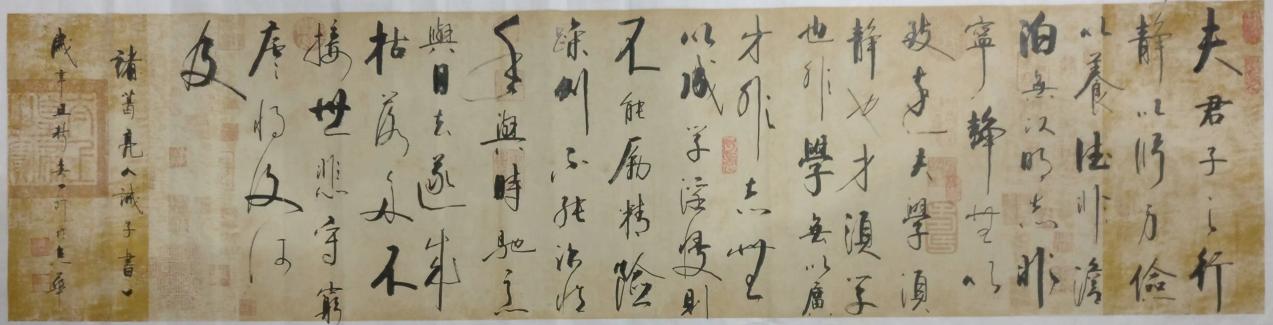 夫君子之行
静以修身儉
以養德非澹
泊無以明志非
寧靜無以
致遠夫學須
静也才須学
也非學無以廣
才非志無
以成学淫慢則
不能勵精險
躁則不能治性
年與時馳意
與日去遂成
枯落多不
接世悲守窮
廬將復何
及
諸葛亮《誡子書》
歲辛丑